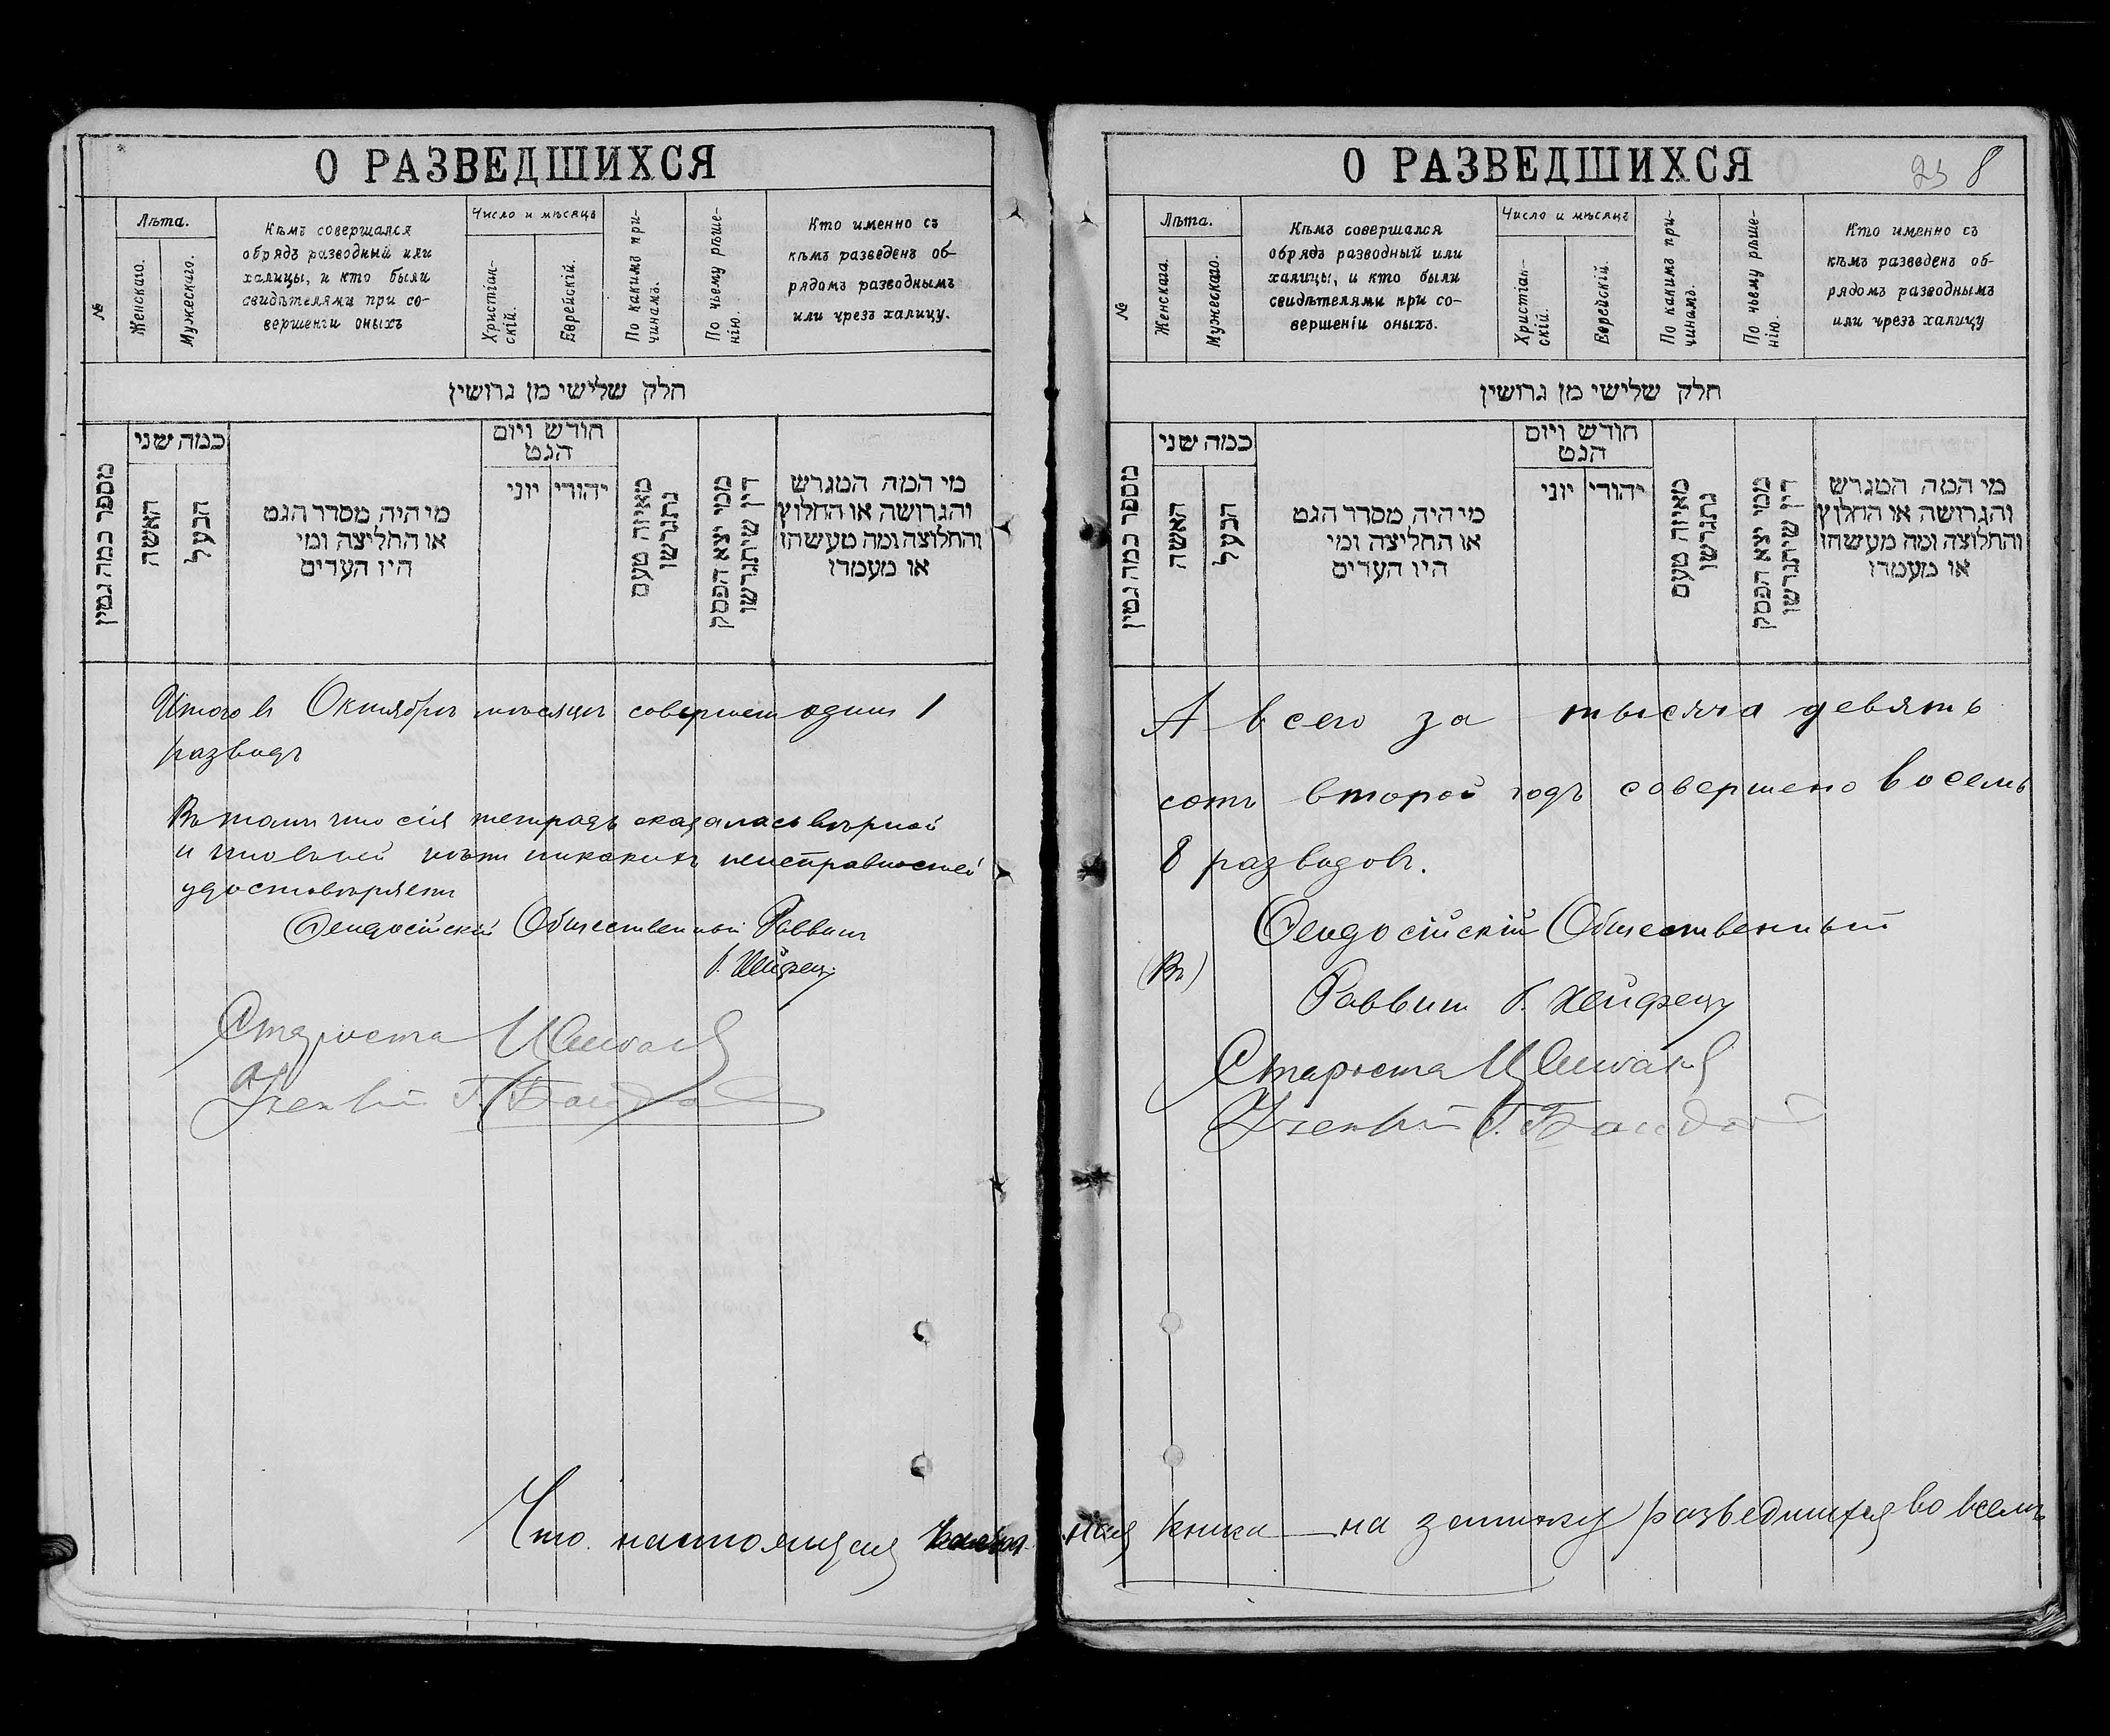 О РАЗВЕДШИХСЯ
№
Лѣта.
Женскаго.
Мужескаго.
Кѣмъ совершался
обрядъ разводный или
халицы, и кто были
свидѣтелями при со-
вершенiи оныхъ
Число и мѣсяцъ
Христiан-
скiй.
Еврейскiй.
По какимъ при-
чинамъ.
По чьему рѣше-
нiю.
Кто именно съ
кѣмъ разведенъ об-
рядомъ разводнымъ
или чрезъ халицу.
חלק שלישי מן גרושין
מספר כמה גטין
כמה שני
האשה
הבעל
מי היה מסדר הגט
או החליצה ומי
היו העדים
חודש ויום
הגט
יהודי
יוני
מאיזה טעם
נתגרשו
ממי יצא הפסק
דין שיתגרשו
מי המה המגרש
והגרושה או החלוץ
והחלוצה ומה מעשהו
או מעמדו
Итого въ Октябрѣ мѣсяцѣ совершенъ одинъ 1
разводъ
Въ томъ что сiя тетрадь оказалась вѣрной
и что въ ней нѣтъ никакихъ неисправностей
удостовѣряетъ
Ѳеодосiйскiй Общественный Раввинъ
Г. Хейфецъ
Староста
Что настоящая
О РАЗВЕДШИХСЯ
23 8
№
Лѣта.
Женскаго.
Мужескаго.
Кѣмъ совершался
обрядъ разводный или
халицы, и кто были
свидѣтелями при со-
вершенiи оныхъ.
Число и мѣсяцъ
Христiан-
скiй.
Еврейскiй.
По какимъ при-
чинамъ.
По чьему рѣше-
нiю.
Кто именно съ
кѣмъ разведенъ об-
рядомъ разводнымъ
или чрезъ халицу
חלק שלישי מן גרושין
מספר כמה גטין
כמה שני
האשה
הבעל
מי היה מסדר הגט
או החליצה ומי
היו העדים
חודש ויום
הגט
יהודי
יוני
מאיזה טעם
נתגרשו
ממי יצא הפסק
דין שיתגרשו
מי המה המגרש
והגרושה או החלוץ
והחלוצה ומה מעשהו
או מעמדו
А всего за тысяча девять
сотъ второй годъ совершено восемь
8 разводовъ.
Ѳеодосiйскiй Общественный
(Въ)
Раввинъ Г. Хейфецъ
Староста
ная книга на записку разведшихся во всемъ